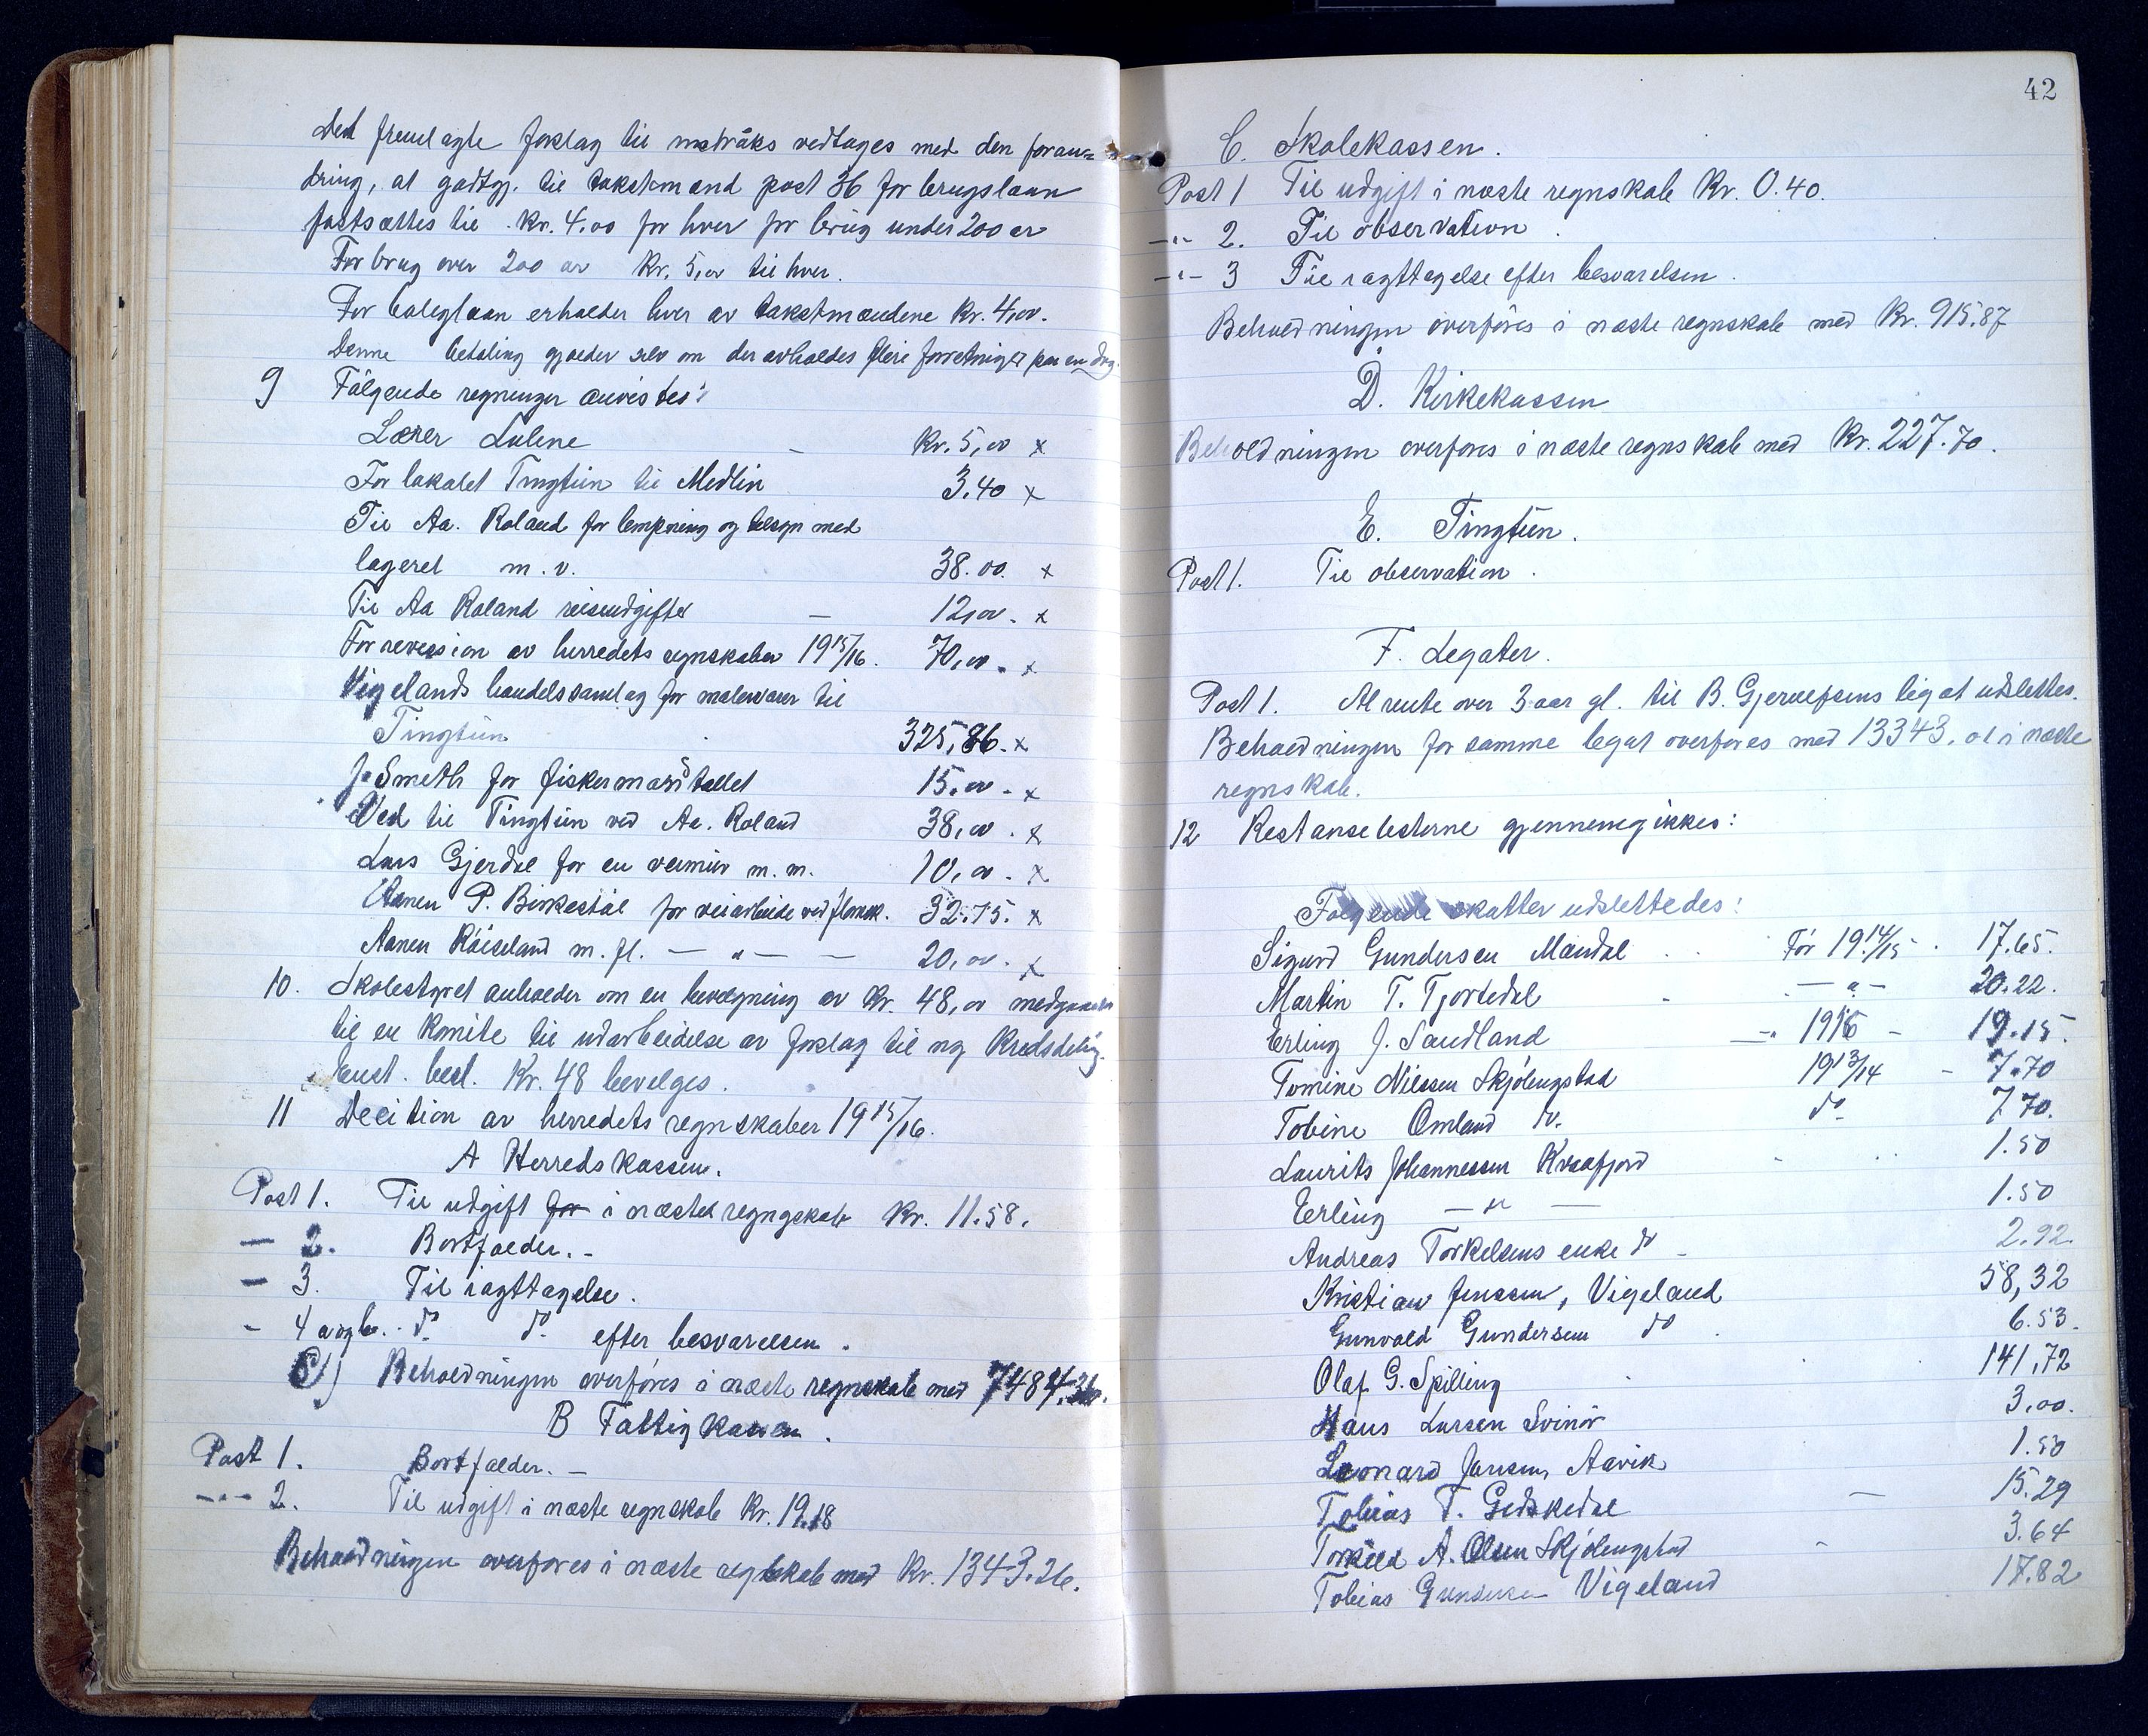 Det fremlagte forslag til instruks vedtages med den foran=
dring, at godtgj. til takstmænd post 36 for brugslaan
fastsættes til kr. 4,00 for hver for brug under 200 ar
For brug over 200 ar kr. 5,00 til hver.
For boliglaan erholder hver av takstmændene kr. 4,00.
Denne betaling gjælder selv om der avholdes flere forretninger paa en dag.
9 Følgende regninger anvistes:
Lærer Lulene - kr. 5,00 x
For lokalet Tingtun til Medlin 3.40 x
Til Aa. Roland for lempning og tilsyn med
lageret m. v. 38.00. x
Til Aa Roland reiseudgifter - 12,00. x
For revision av herredets regnskaber 1915/16. 70,00. x
Vigelands handelssamlag for malervarer til
Tingtun 325,86. x
J. Smeth for fiskermanstallet 15.00. x
Ved til Tingtun ved Aa. Roland 38,00. x
Lars Gjerdal for en veimur m. m. 10,00. x
Aanen P. Birkestøl for veiarbeide ved 32.75. x
Aanen Røiseland m. fl. — " — — 20,00. x
10. Skolestyret anholder om en bevilgning av Kr. 48,00
til en Komite til udarbeidelse av forslag til ny Kredsdeling.
Enst. besl. Kr. 48 bevilges.
11 Decition av herredets regnskaber 1915/16.
A Herredskassen.
Post 1. Til udgift for i næste regngskab Kr. 11.58.
— 2. Bortfalder. -
— 3. Til iagttagelse.
- 4 a og b. do do efter besvarelsen.
Beholdningen overføres i næste regnskab med 7484.36.
B Fattigkassen.
Post 1. Bortfalder. —
-"- 2. Til udgift i næste regnskab Kr. 19.18
Beholdningen overføres i næste regnskab med Kr. 1343.26.
42
C. Skolekassen.
Post 1 Til udgift i næste regnskab Kr. 0.40.
-"- 2. Til observation.
-"- 3 Til iagttagelse efter besvarelsen.
Beholdningen overføres i næste regnskab med Kr. 915.87
D. Kirkekassen
Beholdningen overføres i næste regnskab med Kr. 227.70.
E. Tingtun.
Post 1. Til observation.
F. Legater.
Post 1. At rente over 3 aar gl. til B. Gjervelfsens legat udslettes.
Beholdningen for samme legat overføres med 13343.01 i næste
regnskab.
12 Restanselisterne gjennemgikkes:
Følgende skatter udslettedes:
Sigurd Gundersen Mandal For 1914/15. 17.65.
Martin T. Tjortedal -"- 20.22.
Erling J. Sandland -" 1916 - 19.15.
Tomine Nilssen Skjølingstad 1913/14 - 7.70
Tobine Omland do. do 7.70.
Laurits Johannessen Kvaafjord 1.50
Erling — " — 1.50
Andreas Torkelsens enke do - 2.92.
Kristian Jenssen, Vigeland 58,32
Gunvald Gundersen do 6.53.
Olaf G. Spilling 141,72
Hans Larsen Svinør 3,00.
Leonard Jansen, Aavik 1.50
Tobias T. Gjedskedal — 15.29
Torkild A. Olsen Skjølingstad - 3.64
Tobias Gundersen Vigeland 17.82